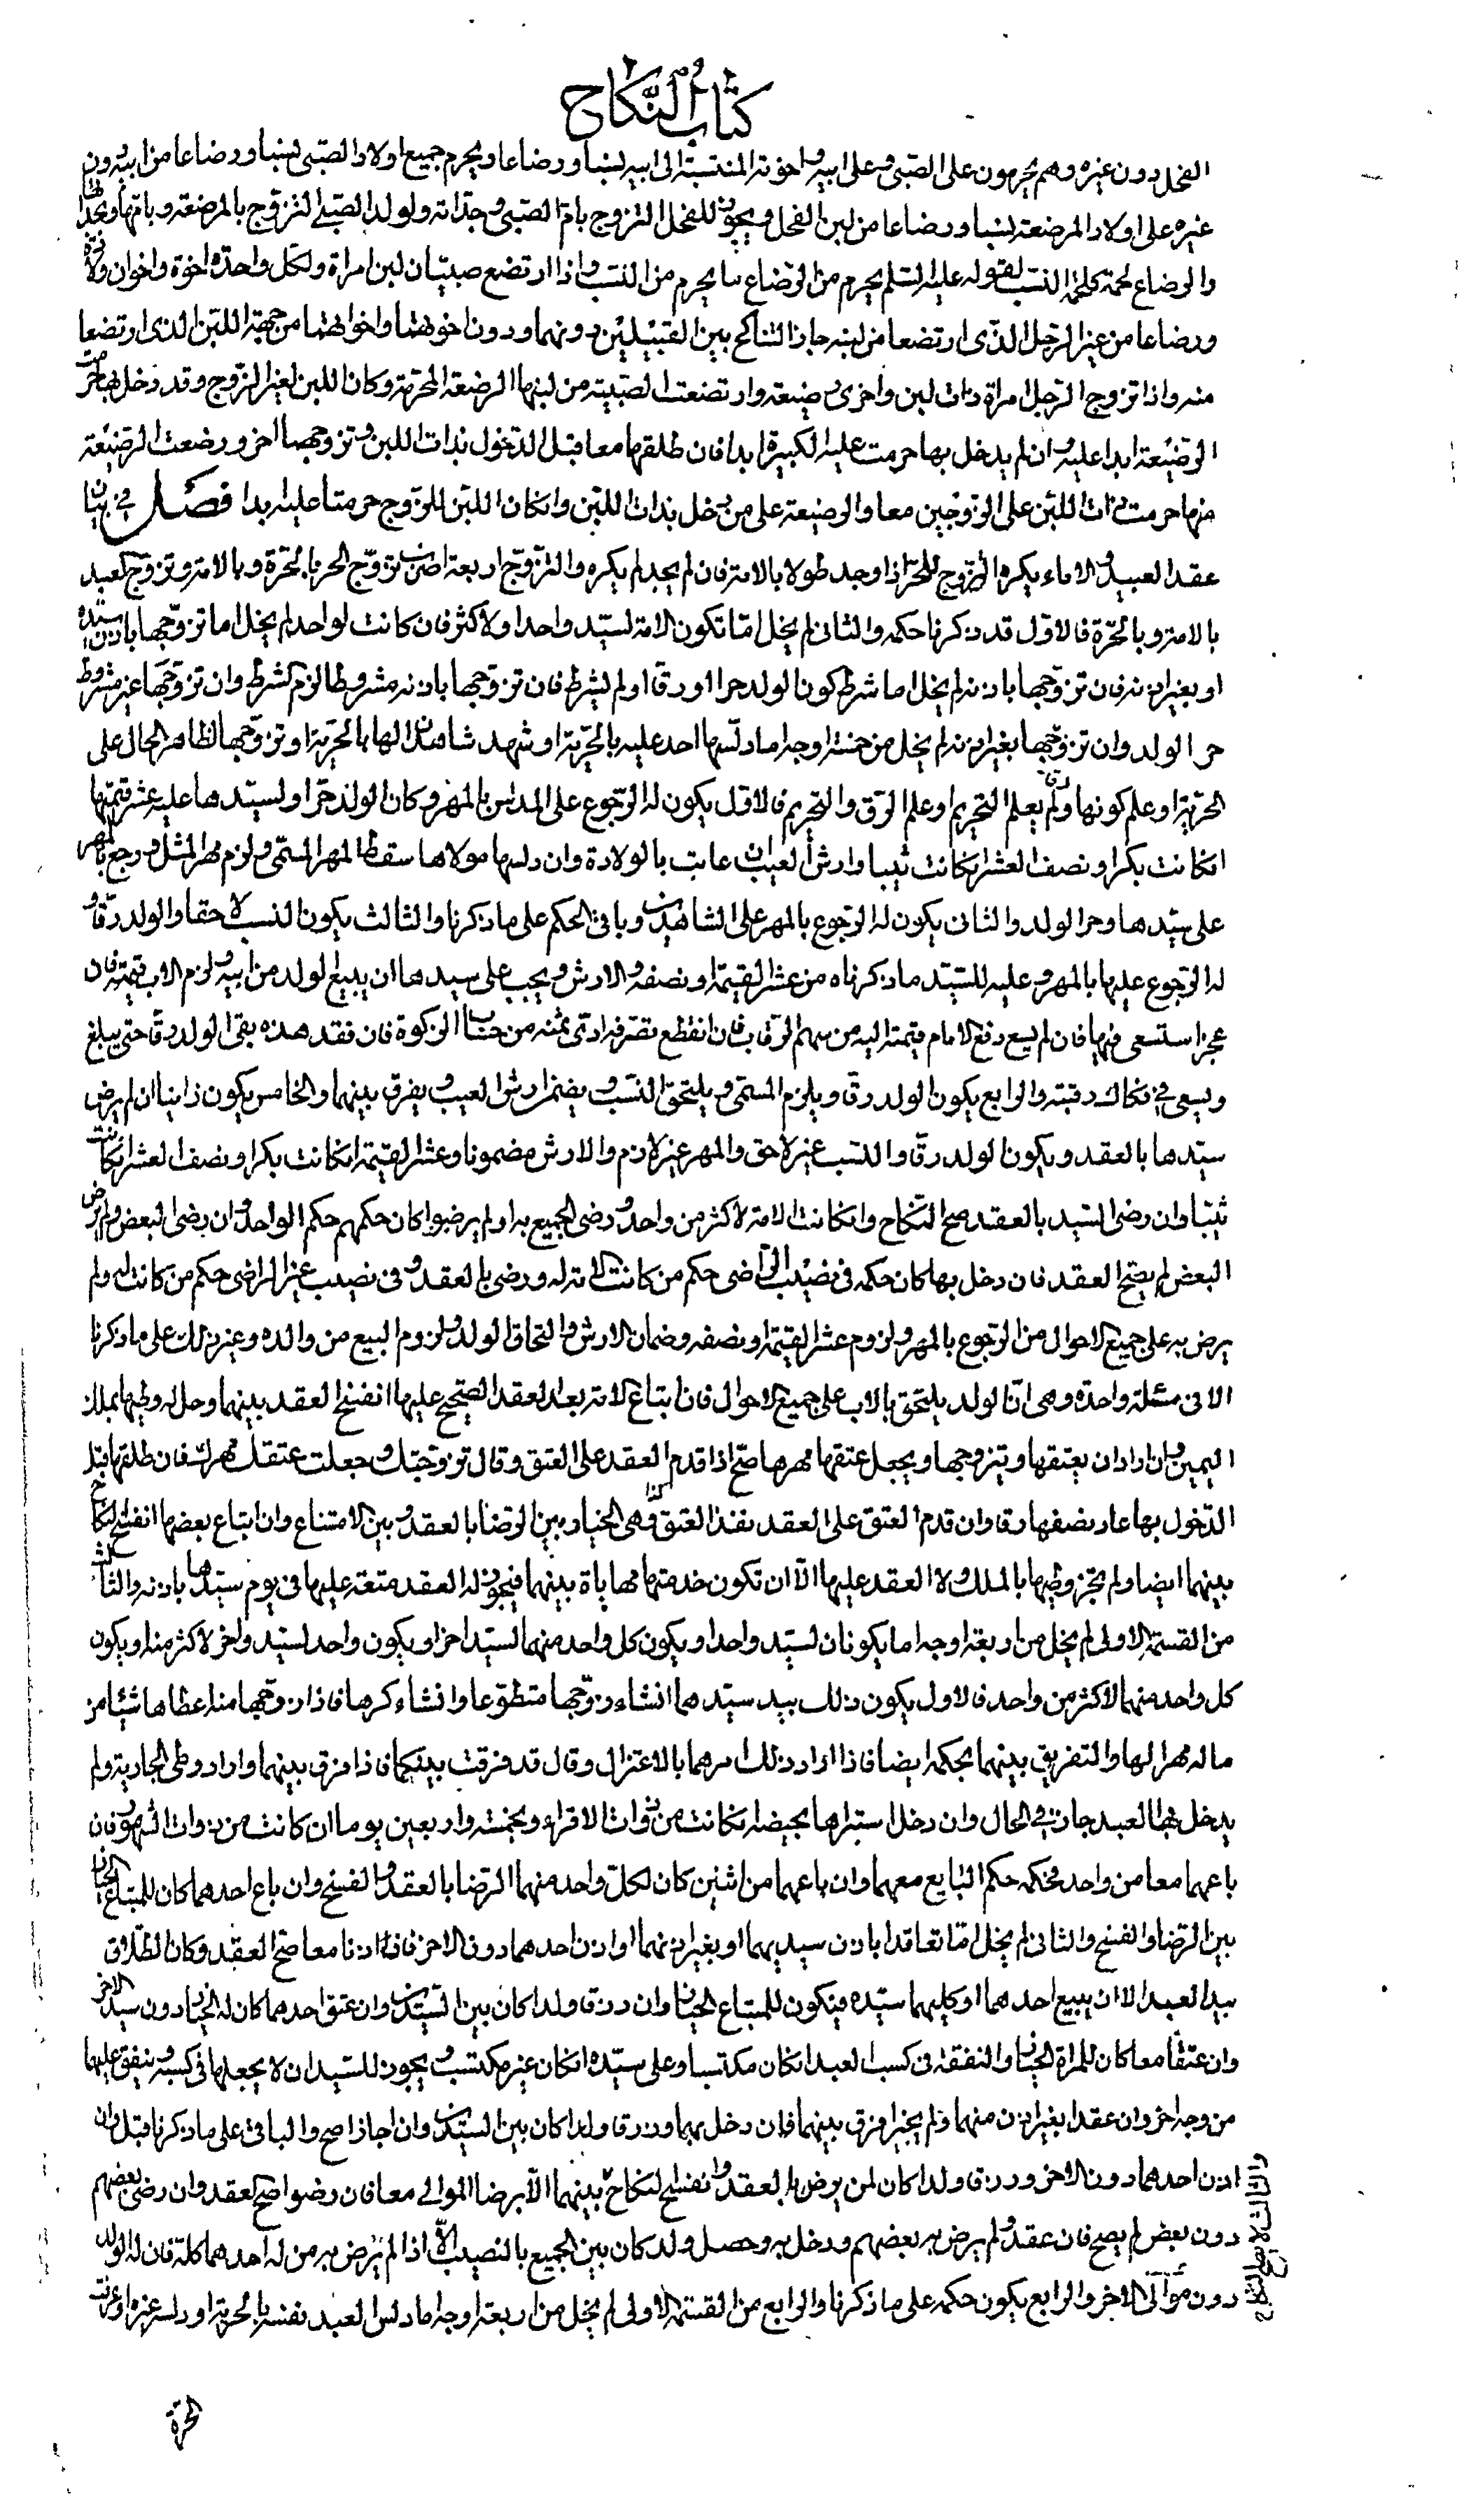 كتاب النكاح
الفحل دون غيره وهم يحرمون على الصبي وعلى ابيه واخوته المنتسبة الى ابيه نسبا ورضاعا ويحرم جميع اولاد الصبي نسبا ورضاعا من ابيه دون
غيره على اولاد المرضعة نسبا ورضاعا من لبن الفحل ويجوز للفحل التزوج بام الصبي وجداته ولوالد الصبي التزوج بالمرضعة وبامها وبجداتها
والرضاع لحمة كلحمة النسب لقوله عليه السلم يحرم من الرضاع ما يحرم من النسب واذا ارتضع صبيان لبن امراة ولكل واحد اخوة واخوات ولادة
ورضاعا من غير الرجل الذى ارتضعا من لبنه جاز التناكح بين القبيلين دونهما ودون اخوتهما واخواتهما من جهة اللبن الذى ارتضعا
منه واذا تزوج الرجل امراة ذات لبن واخرى رضيعة وارتضعت الصبية من لبنها الرضعة المحرمة وكان اللبن لغير الزوج وقد دخل بها حرمت
الرضيعة ابدا عليه وان لم يدخل بها حرمت عليه الكبيرة ابدا فان طلقها معا قبل الدخول بذات اللبن وتزوجهما اخر ورضعت الرضيعة
منها حرمت ذات اللبن على الزوجين معا والرضيعة على من دخل بذات اللبن وانكان اللبن للزوج حرمتا عليه ابدا فصل فى بيان
عقد العبيد والاماء يكره التزوج للحر اذا وجد طولا بالامة فان لم يجد لم يكره والتزوج اربعة اضرب تزوج الحر بالحرة وبالامة وتزوج العبد
بالامة وبالحرة فالاول قد ذكرنا حكمه والثانى لم يخل اما تكون الامة لسيد واحد او لاكثر فان كانت لواحد لم يخل اما تزوجها باذن سيده
او بغير اذنه فان تزوجها باذنه لم يخل اما شرط كون الولد حرا او رقا او لم يشرط فان تزوجها باذنه مشروطا لزم الشرط وان تزوجها غير مشروط
حرا الولد وان تزوجها بغير اذنه لم يخل من خمسة اوجه اما دلسها احد عليه بالحرية او شهد شاهدان لها بالحرية او تزوجها لظاهر الحال على
الحرية او علم كونها رقا ولم يعلم التحريم او علم الرق والتحريم فالاول يكون له الرجوع على المدلس بالمهر وكان الولد حرا ولسيدها عليه عشر قيمتها
انكانت بكرا ونصف العشر انكانت ثيبا وارش العيب ان عابت بالولادة وان دلسها مولاها سقط المهر المسمى ولزم مهر المثل ورجع بالمهر
على سيدها وحرا الولد والثانى يكون له الرجوع بالمهر على الشاهدين وباقى الحكم على ما ذكرنا والثالث يكون النسب لاحقا والولد رقا و
له الرجوع عليها بالمهر وعليه للسيد ما ذكرناه من عشر القيمة او نصفه والارش ويجب على سيدها ان يبيع الولد من ابيه ولزم الاب قيمته فان
عجز استسعى فيها فان لم يسع دفع الامام قيمته اليه من سهم الرقاب فان انقطع تصرفه ادى ثمنه من حساب الزكوة فان فقد هذه بقى الولد رقا حتى يبلغ
ويسعى فى فكاك رقبته والرابع يكون الولد رقا ويلزم المسمى ويلتحق النسب ويضمن ارش العيب ويفرق بينهما والخامس يكون زانيا ان لم يرض
سيدها بالعقد ويكون الولد رقا والنسب غير لاحق والمهر غير لازم والارش مضمونا وعشر القيمة انكانت بكرا ونصف العشر انكانت
ثيبا وان رضى السيد بالعقد صح النكاح وانكانت الامة لاكثر من واحد ورضى الجميع به او لم يرضوا كان حكمهم حكم الواحد وان رضى البعض ولم يرض
البعض لم يصح العقد فان دخل بها كان حكمه فى نصيب الراضى حكم من كانت الامة له ورضى بالعقد وفى نصيب غير الراضى حكم من كانت له ولم
يرض به على جميع الاحوال من الرجوع بالمهر ولزوم عشر القيمة او نصفه وضمان الارش والتحاق الولد ولزوم البيع من والده وغير ذلك على ما ذكرنا
الا فى مسئلة واحدة وهى ان الولد يلتحق بالاب على جميع الاحوال فان ابتاع الامة بعد العقد الصحيح عليها انفسخ العقد بينهما وحل له وطيها بملك
اليمين وان اراد ان يعتقها ويتزوجها ويجعل عتقها مهرها صح اذا قدم العقد على العتق وقال تزوجتك وجعلت عتقك مهرك فان طلقها قبل
الدخول بها عاد نصفها رقا وان قدم العتق على العقد نفذ العتق وهى بالخيار بين الرضا بالعقد وبين الامتناع وان ابتاع بعضها انفسخ النكاح
بينهما ايضا ولم يجز وطيها بالملك ولا العقد عليها الا ان تكون خدمتها مهاياة بينهما فيجوز له العقد متعة عليها فى يوم سيدها باذنه والثالث
من القسمة الاولى لم يخل من اربعة اوجه اما يكونان لسيد واحد او يكون كل واحد منهما لسيد اخر او يكون واحد لسيد واخر لاكثر منه او يكون
كل واحد منهما لاكثر من واحد فالاول يكون ذلك بيد سيدهما انشاء زوجها متطوعا وانشاء كرها فاذا زوجها منه اعطاها شيئا من
ماله مهرا لها والتفريق بينهما بحكمه ايضا فاذا اراد ذلك امرهما بالاعتزال وقال قد فرقت بينكما فاذا فرق بينهما واراد وطى الجارية ولم
يدخل بها العبد جاز فى الحال وان دخل استبراها بحيضة انكانت من ذوات الاقراء وبخمسة واربعين يوما ان كانت من ذوات الشهور فان
باعهما معا من واحد فحكمه حكم البايع معهما وان باعهما من اثنين كان لكل واحد منهما الرضا بالعقد والفسخ وان باع احدهما كان للمبتاع الخيار
بين الرضا والفسخ والثانى لم يخل اما تعاقدا باذن سيديهما او بغير اذنهما او اذن احدهما دون الاخر فاذا اذنا معا صح العقد وكان الطلاق
بيد العبد الا ان يبيع احدهما او كليهما سيده فيكون للمبتاع الخيار وان رزقا ولدا كان بين السيدين وان عتق احدهما كان له الخيار دون سيد الاخر
وان عتقا معا كان للمراة الخيار والنفقة فى كسب العبد انكان مكتسبا وعلى سيده انكان غير مكتسب ويجوز للسيد ان لا يجعلها فى كسبه وينفق عليها
من وجه اخر وان عقدا بغير اذن منهما ولم يخيرا فرق بينهما فان دخل بها ورزقا ولدا كان بين السيدين وان اجازا صح والباقى على ما ذكرنا قبل وان
اذن احدهما دون الاخر ورزقا ولدا كان لمن لم يرض بالعقد وانفسخ النكاح بينهما الا برضا الموالى معا فان رضوا صح العقد وان رضى بعضهم
دون بعض لم يصح فان عقد ولم يرض به بعضهم ودخل به وحصل ولد كان بين الجميع بالنصيب الا اذا لم يرض به من له احدهما كلة فان له الولد
دون موالى الاخر والرابع يكون حكمه على ما ذكرنا والرابع من القسمة الاولى لم يخل من اربعة اوجه اما دلس العبد نفسه بالحرية او دلسه غيره او عرفت
الحرة